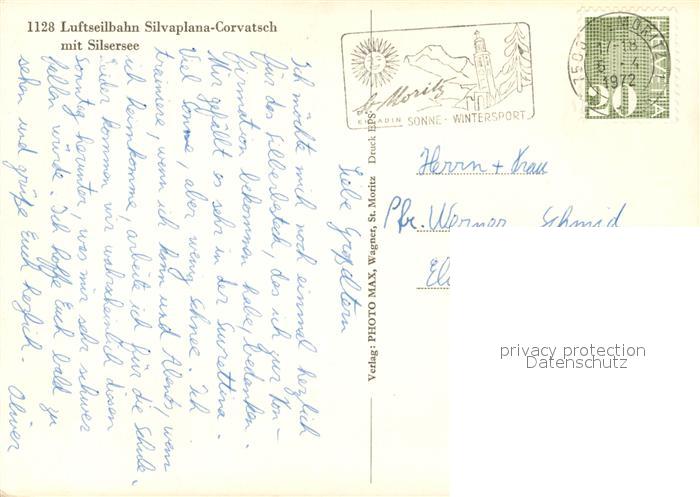 1128 Luftseilbahn Silvaplana-Corvatsch
mit Silsersee
Liebe Großeltern
Ich möchte mich noch einmal herzlich
für das Silberbesteck, das ich zur Kon-
firmation bekommen habe, bedanken.
Mir gefällt es sehr in der Suvrettina.
Viel Sonne, aber wenig Schnee. Ich
trainiere, wenn ich kann und Abends, wenn
ich heimkomme, arbeite ich für die Schule.
Leider kommen wir wahrscheinlich diesen
Sonntag herunter, was mir sehr schwer
fallen würde. Ich hoffe Euch bald zu
sehen und grüße Euch herzlich. Oliver
Verlag: PHOTO MAX, Wagner, St. Moritz Druck EPS
St. Moritz
ENGADIN SONNE - WINTERSPORT
7500 ST. MORITZ
17-18
1972
HELVETIA
20
Herrn + Frau
Pfr. Werner Schmid
privacy protection
Datenschutz